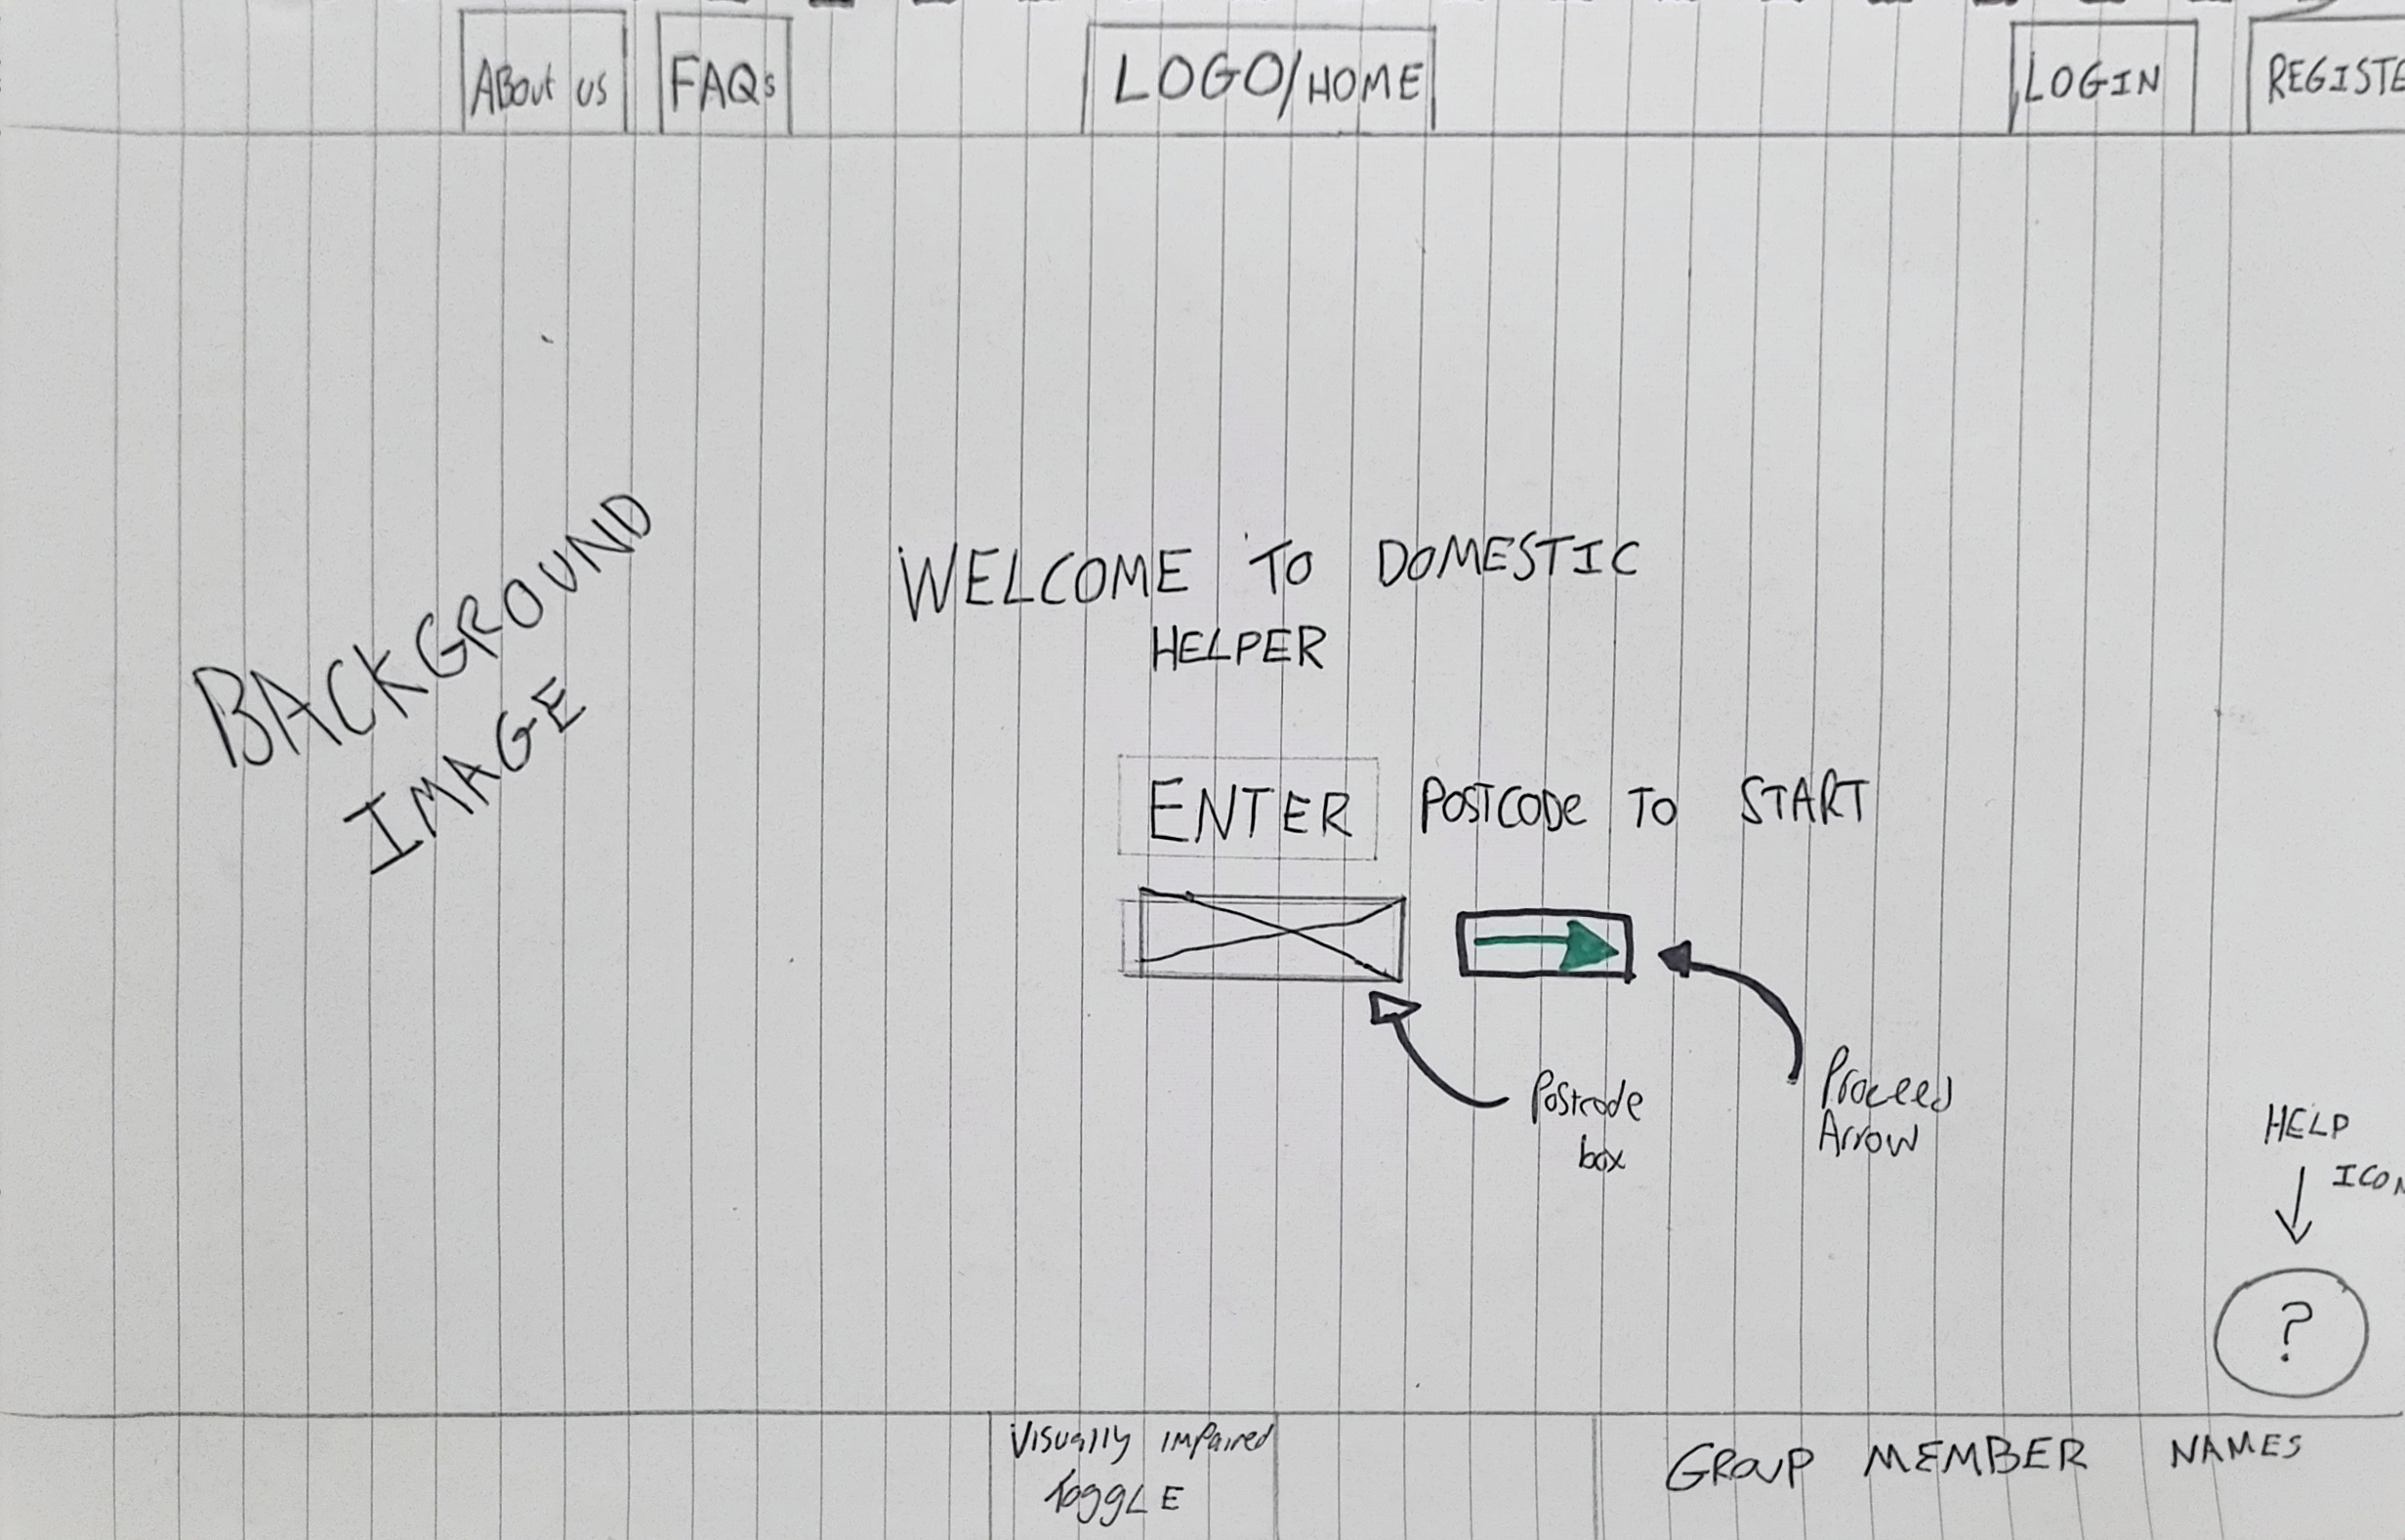 ABout us
FAQs
LOGO/HOME
LOGIN
REGISTE
BACKGROUND
IMAGE
WELCOME TO DOMESTIC
HELPER
ENTER POSTCODe TO START
Postcode
box
Proceed
Arrow
HELP
ICON
?
Visually impaired
ToggLE
GROUP MEMBER NAMES